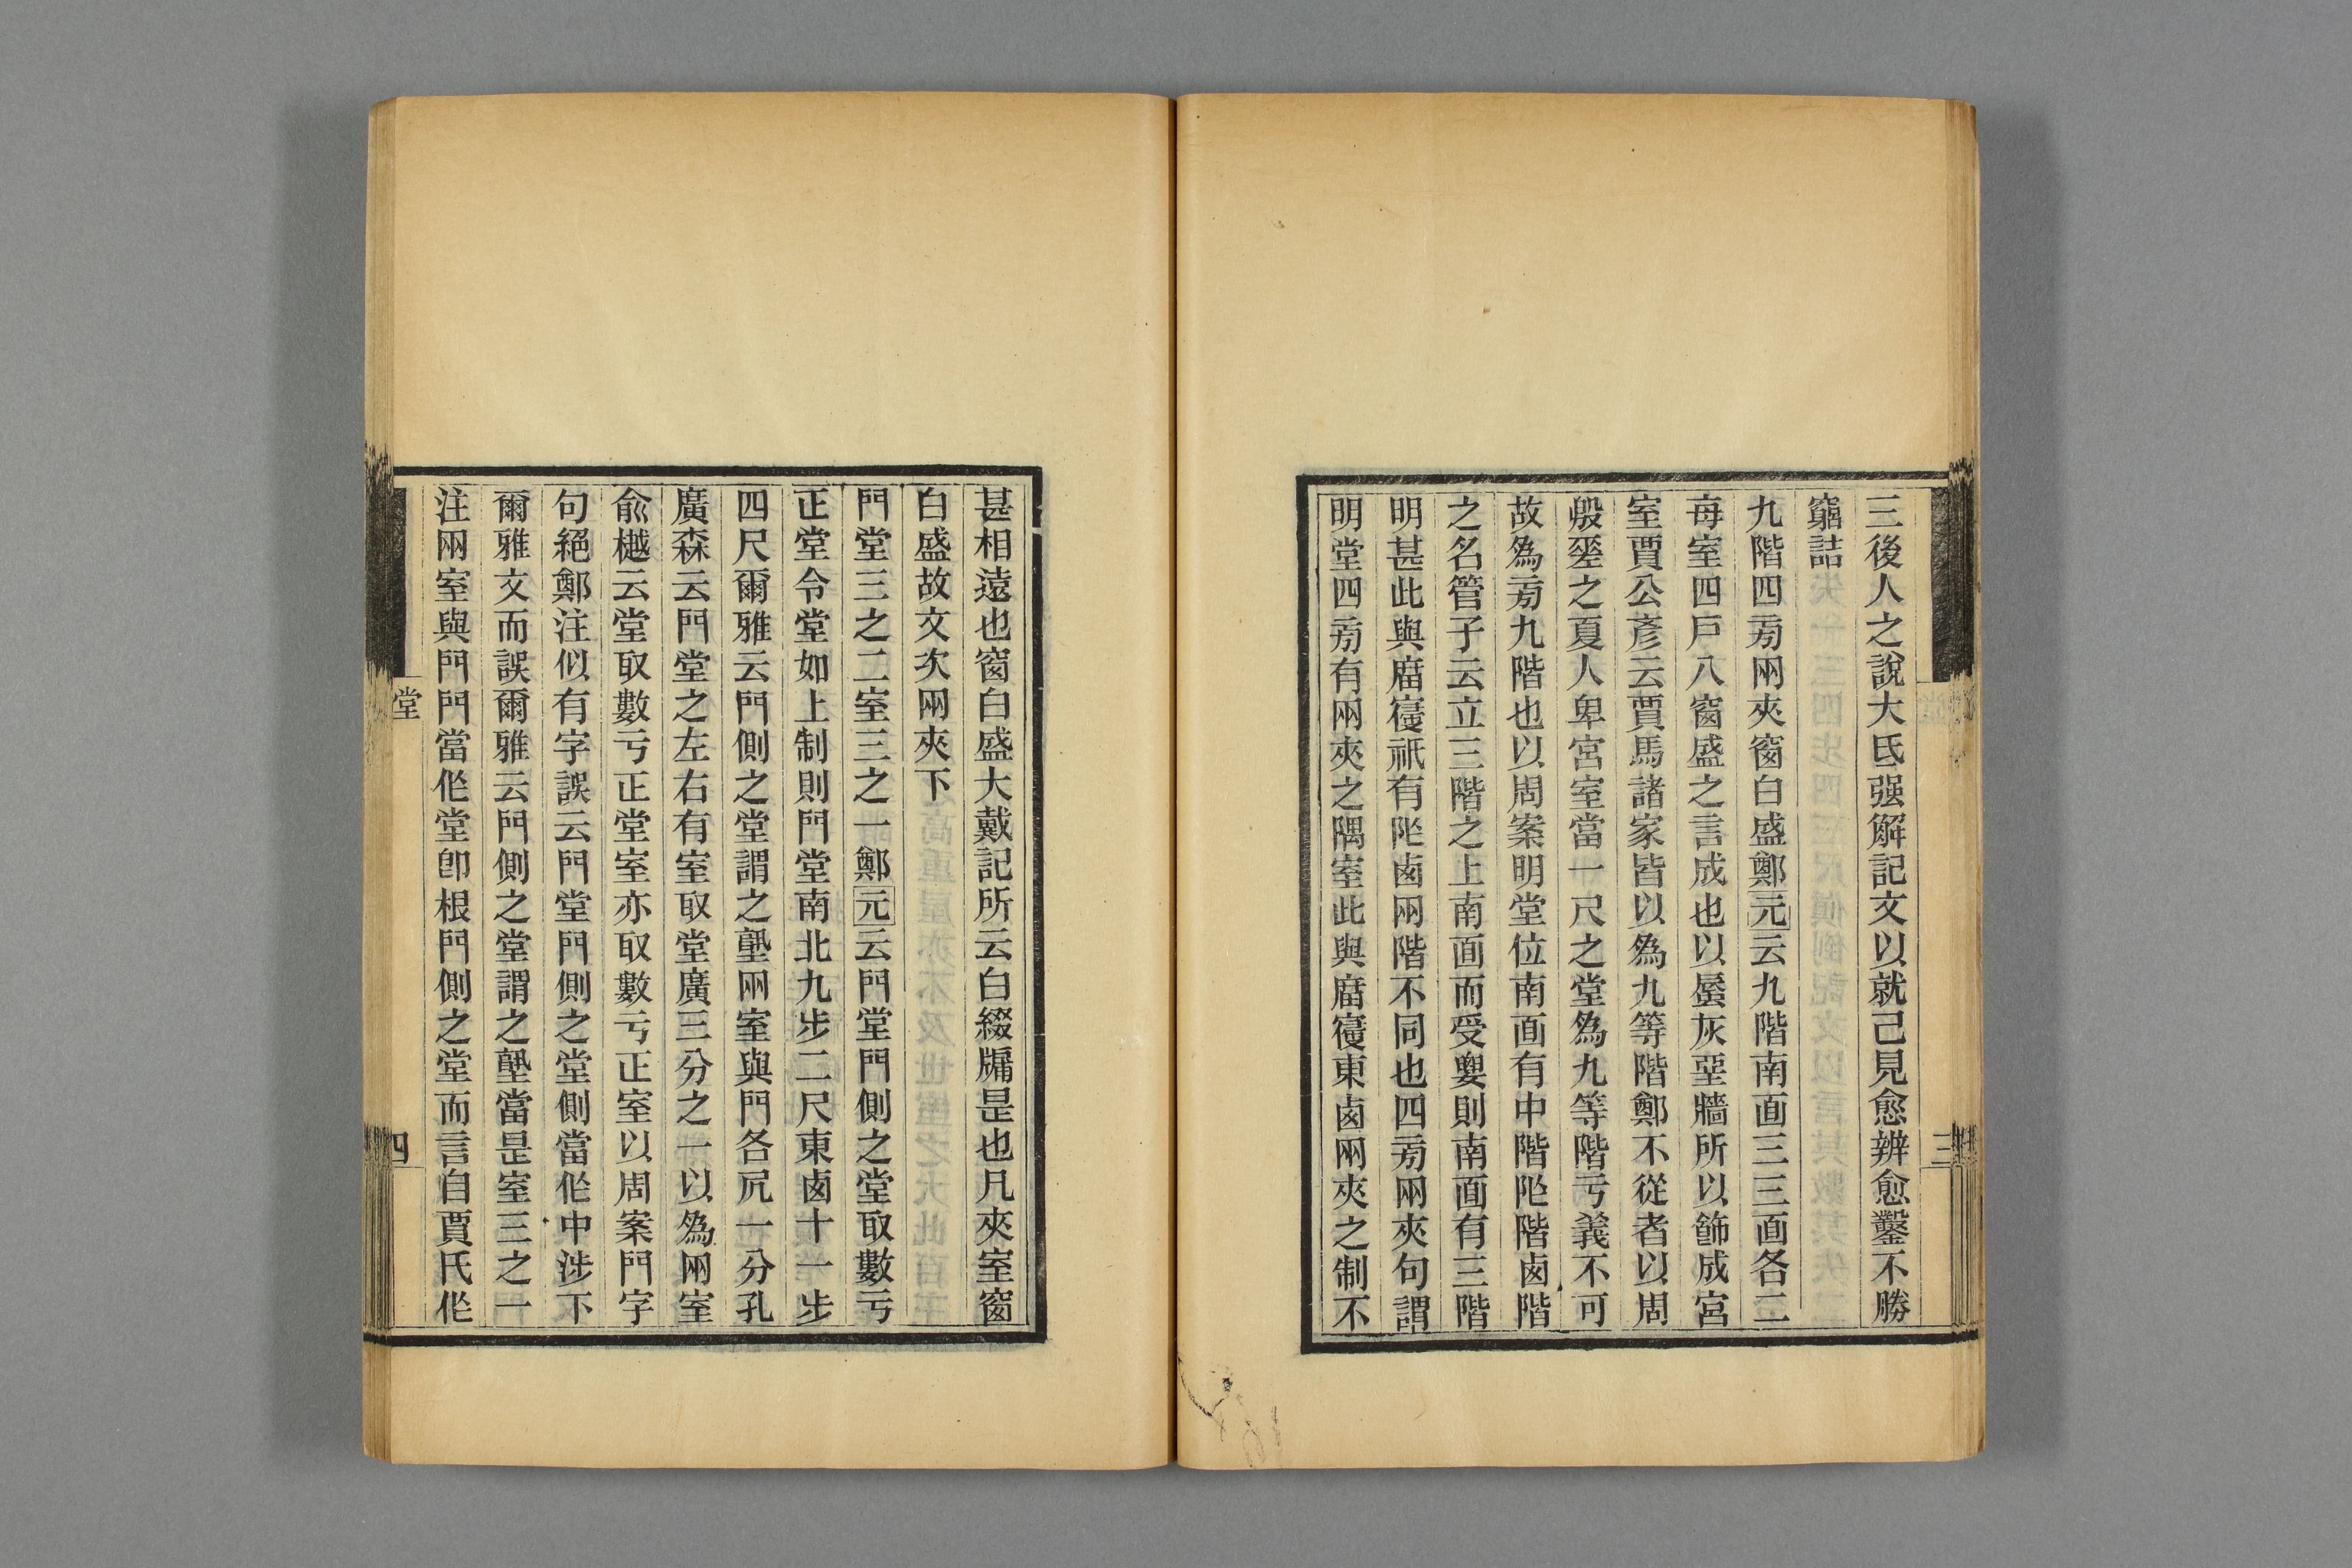 三後人之說大氐强解記文以就己見愈辨愈鑿不勝
窮詰
九階四㫄兩夾窗白盛鄭元云九階南面三三面各二
每室四戶八窗盛之言成也以蜃灰堊牆所以飾成宮
室賈公彥云賈馬諸家皆以為九等階鄭不從者以周
殷𨓏之夏人卑宮室當一尺之堂為九等階亏義不可
故為㫄九階也以周案明堂位南面有中階阼階卤階
之名管子云立三階之上南面而受要則南面有三階
明甚此與㢈寑祇有阼卤兩階不同也四㫄兩夾句謂
明堂四㫄有兩夾之隅室此與㢈寑東卤兩夾之制不
三
甚相遠也窗白盛大戴記所云白綴牖是也凡夾室窗
白盛故文次兩夾下
門堂三之二室三之一鄭元云門堂門側之堂取數亏
正堂令堂如上制則門堂南北九步二尺東卤十一步
四尺爾雅云門側之堂謂之塾兩室與門各凥一分孔
廣森云門堂之左右有室取堂廣三分之一以為兩室
俞樾云堂取數亏正堂室亦取數亏正室以周案門字
句絕鄭注似有字誤云門堂門側之堂側當㑅中涉下
爾雅文而誤爾雅云門側之堂謂之塾當是室三之一
注兩室與門門當㑅堂卽根門側之堂而言自賈氏㑅
堂
四